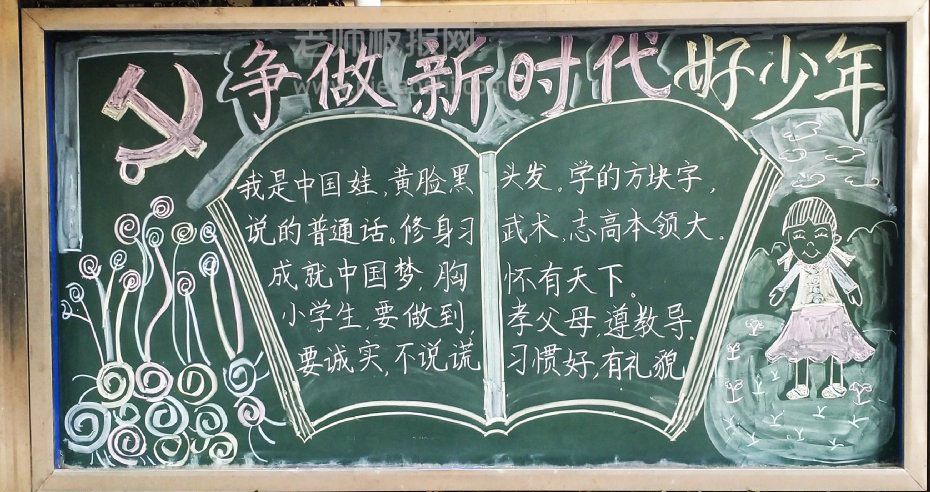 争做新时代好少年
我是中国娃，黄脸黑头发。学的方块字，
说的普通话。修身习武术，志高本领大。
成就中国梦，胸怀有天下。
小学生，要做到，孝父母，遵教导。
要诚实，不说谎，习惯好，有礼貌
老师板报网